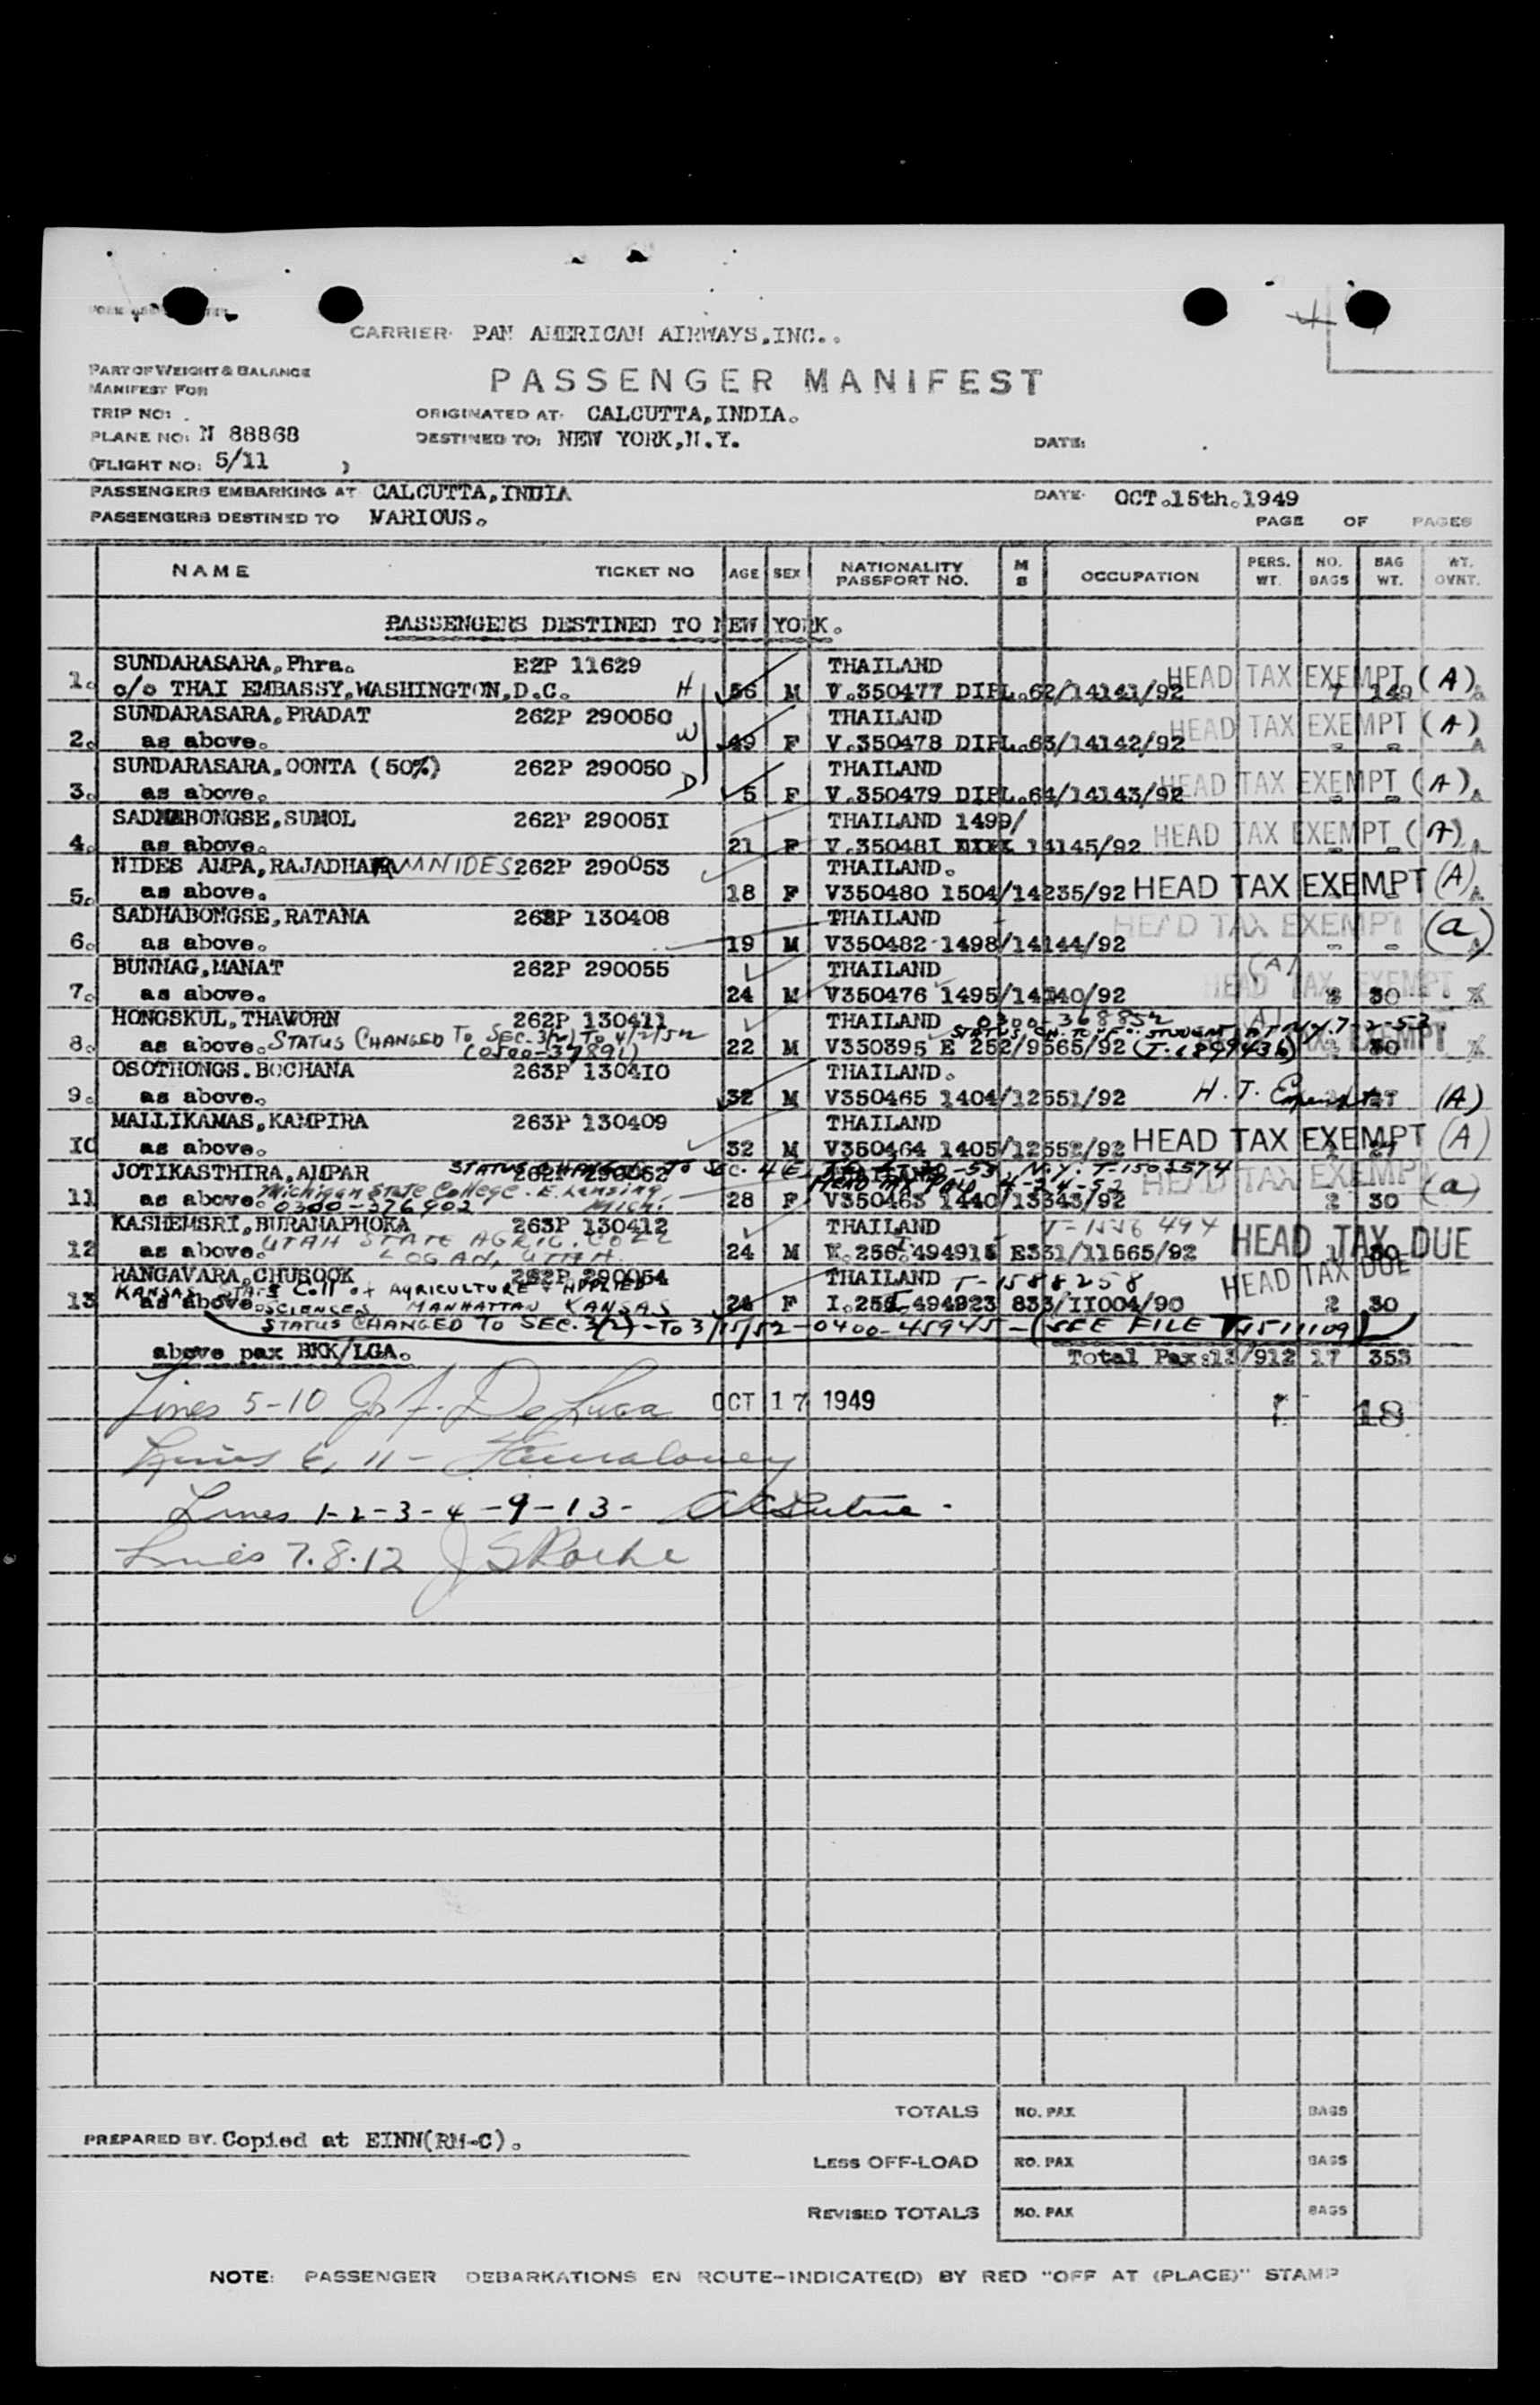 CARRIER: PAN AMERICAN AIRWAYS,INC..
PART OF WEIGHT & BALANCE
MANIFEST FOR
PASSENGER MANIFEST
TRIP NO:
ORIGINATED AT: CALCUTTA,INDIA.
PLANE NO: N 88868
DESTINED TO: NEW YORK,N.Y.
DATE:
(FLIGHT NO: 5/11 )
PASSENGERS EMBARKING AT CALCUTTA,INDIA
DATE: OCT.15th.1949
PASSENGERS DESTINED TO VARIOUS.
PAGE OF PAGES
NAME TICKET NO AGE SEX NATIONALITY PASSPORT NO. M S OCCUPATION PERS. WT. NO. BAGS BAG WT. WT. OVNT.
PASSENGERS DESTINED TO NEW YORK.
SUNDARASARA,Phra. E2P 11629 THAILAND
1. c/o THAI EMBASSY,WASHINGTON,D.C. H 56 M V.350477 DIPL.62/14141/92 HEAD TAX EXEMPT (A) 7 149
SUNDARASARA,PRADAT 262P 290050 THAILAND
2. as above. W 49 F V.350478 DIPL.63/14142/92 HEAD TAX EXEMPT (A)
SUNDARASARA,OONTA (50%) 262P 290050 THAILAND
3. as above. D 5 F V.350479 DIPL.64/14143/92 HEAD TAX EXEMPT (A)
SADHABONGSE,SUMOL 262P 29005I THAILAND 1499/
4. as above. 21 F V.35048I 14145/92 HEAD TAX EXEMPT (A)
NIDES AMPA, 262P 290053 THAILAND.
5. as above. 18 F V350480 1504/14235/92 HEAD TAX EXEMPT (A)
SADHABONGSE,RATANA 263P 130408 THAILAND
6. as above. 19 M V350482 1498/14144/92 HEAD TAX EXEMPT (a)
BUNNAG,MANAT 262P 290055 THAILAND (A)
7. as above. 24 M V350476 1495/14140/92 HEAD TAX EXEMPT 2 30
HONGSKUL,THAWORN 262P 130411 THAILAND 0300-368852 (A)
8. as above. STATUS CHANGED TO SEC. 3(2) TO 4/2/52 22 M V350395 E 252/9565/92 30
(0500-37891)
OSOTHONGS.BOCHANA 263P 130410 THAILAND.
9. as above. 32 M V350465 1404/12551/92 H. T. Exempt (A)
MALLIKAMAS,KAMPIRA 263P 130409 THAILAND
10 as above. 32 M V350464 1405/12552/92 HEAD TAX EXEMPT (A) 27
JOTIKASTHIRA,AMPAR
HEAD TAX PAID 4-24-52
11 as above. Michigan State College. E. Lansing, Mich. 28 F V350463 1440/13343/92 HEAD TAX EXEMPT (a) 2 30
0300-376902
KASHEMSRI,BURANAPHOKA 263P 130412 THAILAND
12 as above. UTAH STATE AGRIC. COLL 24 M E331/11565/92 HEAD TAX DUE
LOGAN, UTAH
RANGAVARA,CHUROOK 262P 290054 THAILAND T-1588258 HEAD TAX DUE
KANSAS STATE Coll of AGRICULTURE + APPLIED
13 as above. SCIENCES MANHATTAN KANSAS F 833/II004/90 2 30
STATUS CHANGED TO SEC. 3(2)-TO 3/15/52-0400-45945-(SEE FILE
above pax BKK/LGA. Total Pax:13/912 17 353
Lines 5-10 OCT 17 1949 18
Lines 6, 11 -
Lines 1-2-3-4-9-13-
Lines 7.8.12
TOTALS NO. PAX BAGS
PREPARED BY. Copied at EINN(RM-C).
LESS OFF-LOAD NO. PAX BAGS
REVISED TOTALS NO. PAX BAGS
NOTE: PASSENGER DEBARKATIONS EN ROUTE-INDICATE(D) BY RED "OFF AT (PLACE)" STAMP